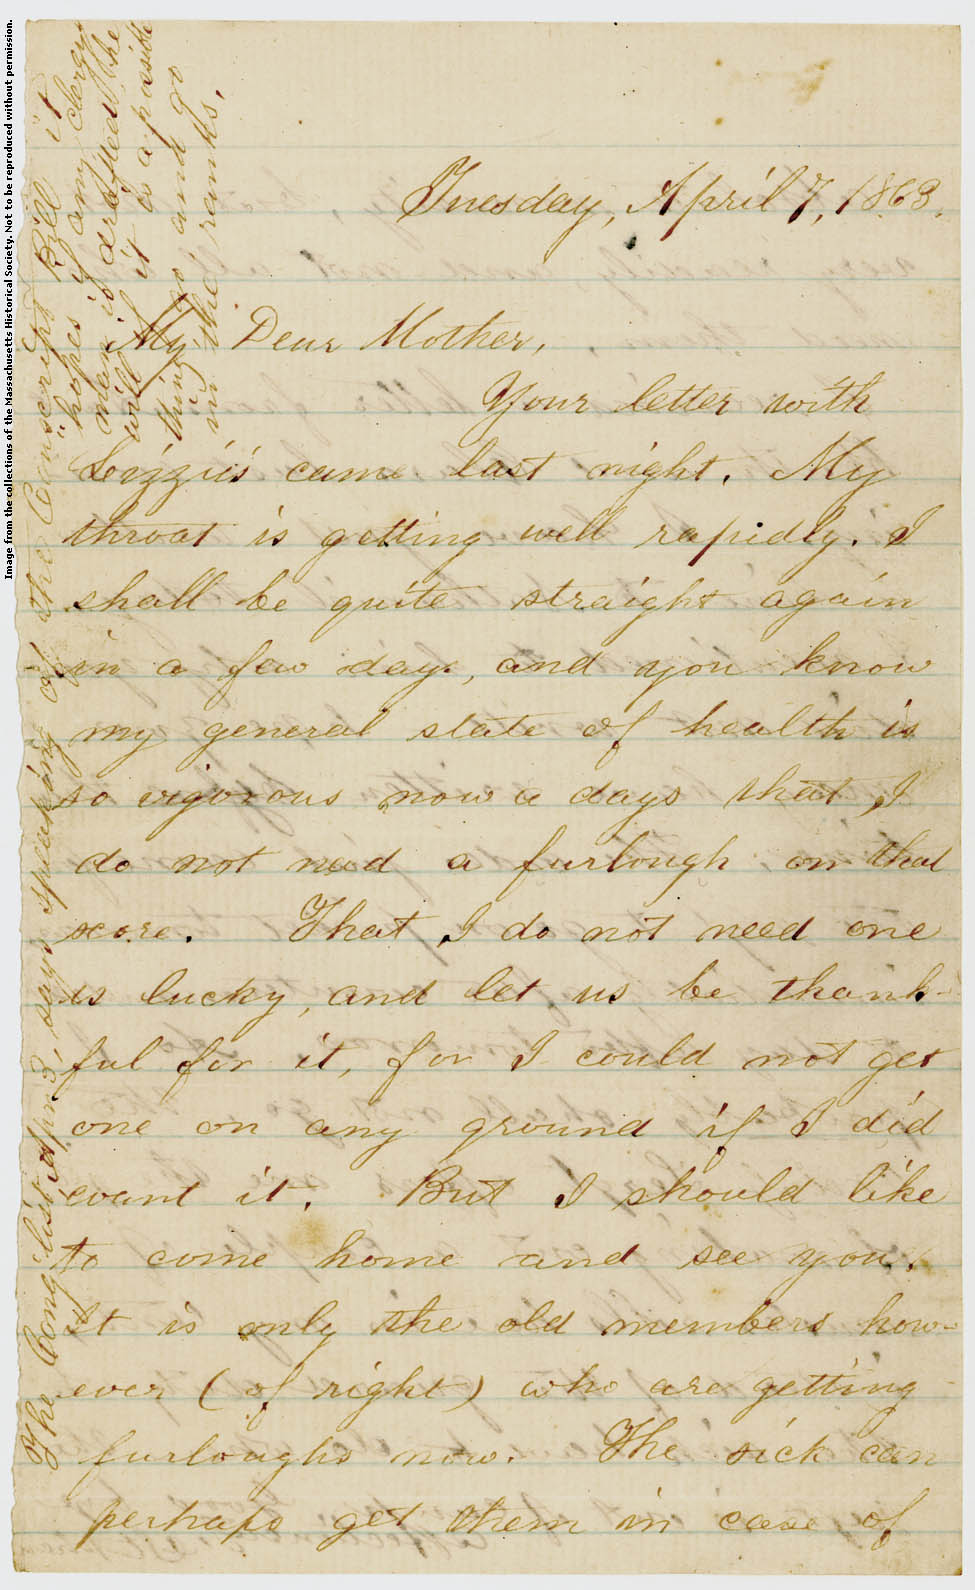 Tuesday, April 7, 1863.
My Dear Mother,
Your letter with
Lizzie's came last night. My
throat is getting well rapidly. I
shall be quite straight again
in a few days, and you know
my general state of health is
so vigorous now a days that I
do not need a furlough on that
score. That I do not need one
is lucky, and let us be thank-
ful for it, for I could not get
one on any ground if I did
want it. But I should like
to come home and see you.
It is only the old members how-
ever (of right) who are getting
furloughs now. The sick can
perhaps get them in case of
The Cong'list, Apr 3, says speaking of the Conscript Bill it
"hopes if any clergy
man is drafted, he
will if it is a possible
thing go and go
in the ranks.
Image from the collections of the Massachusetts Historical Society. Not to be reproduced without permission.